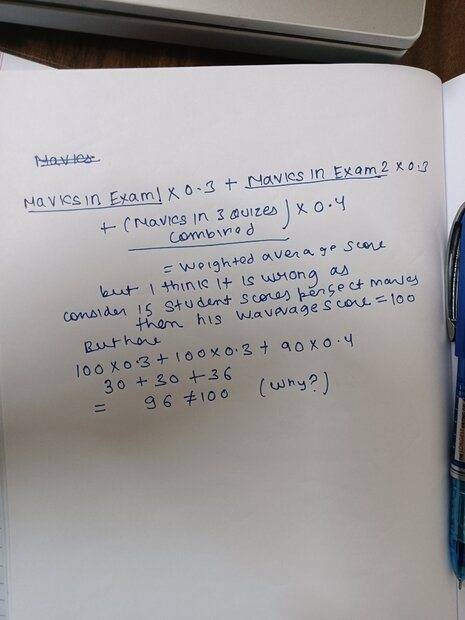 Marks
Marks in Exam 1 × 0.3 + Marks in Exam 2 × 0.3
+ (Marks in 3 Quizes combined) × 0.4
= weighted average score
but I think it is wrong as
consider is student scores perfect marks
then his waverage score = 100
But here
100 × 0.3 + 100 × 0.3 + 90 × 0.4
30 + 30 + 36
= 96 ≠ 100 (why?)